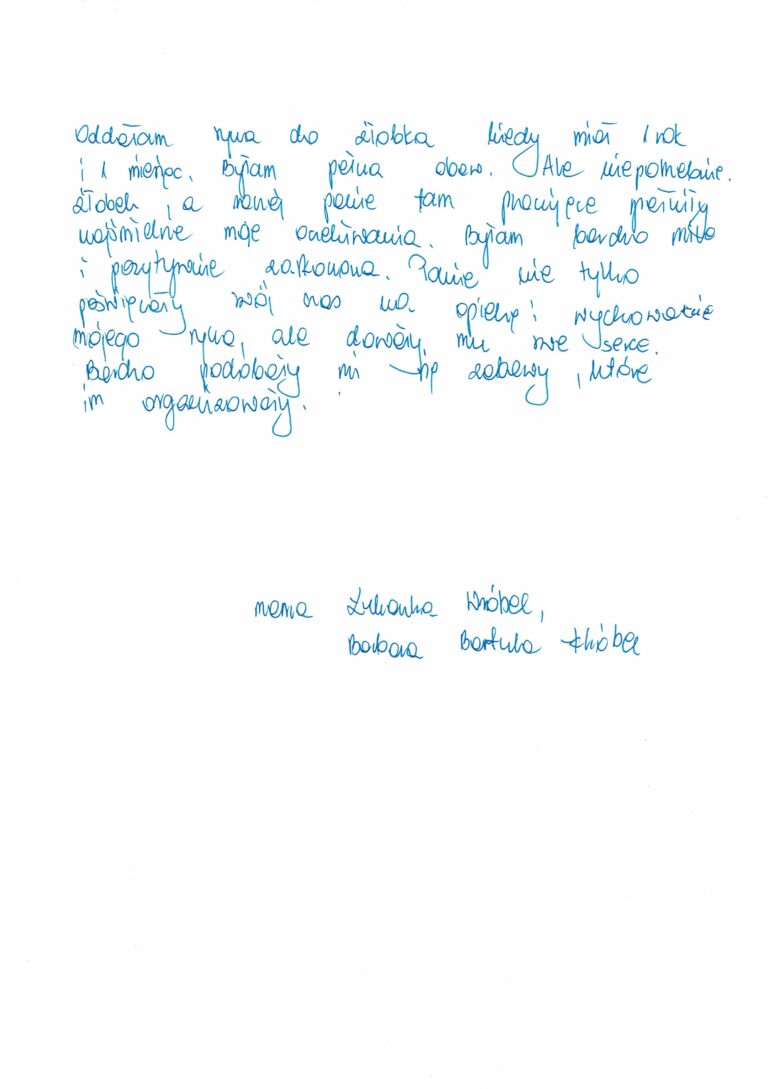 Oddałam syna do żłobka kiedy miał 1 rok
i 1 miesiąc. Byłam pełna obaw. Ale niepotrzebnie.
Żłobek, a raczej panie tam pracujące spełniły
najśmielsze moje oczekiwania. Byłam bardzo mile
i pozytywnie zaskoczona. Panie nie tylko
poświęcały swój czas na opiekę i wychowanie
mojego syna, ale dawały mu swe serce.
Bardzo podobały mi się zabawy, które
im organizowały.
mama Wróbel,
Barbara Bartula Wróbel